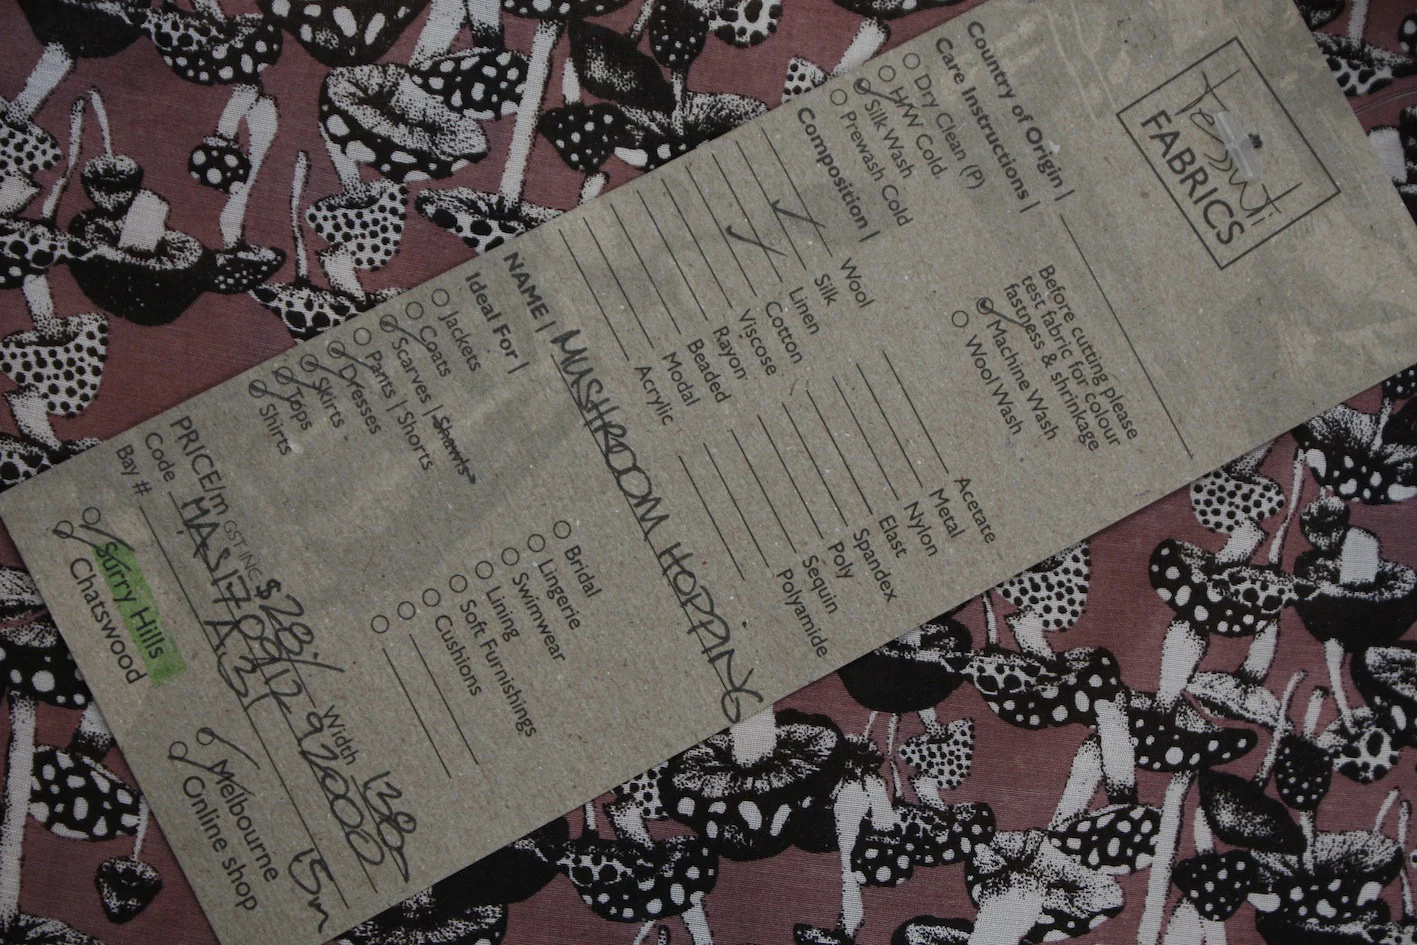 Tessuti
FABRICS
Country of Origin |
Care Instructions |
Dry Clean (P)
H/W Cold
Silk Wash
Prewash Cold
Before cutting please
test fabric for colour
fastness & shrinkage
Machine Wash
Wool Wash
Composition |
Wool
Silk
Linen
Cotton
Viscose
Rayon
Beaded
Modal
Acrylic
Acetate
Metal
Nylon
Elast
Spandex
Poly
Sequin
Polyamide
NAME | MUSHROOM HOPPING
Ideal For |
Jackets
Coats
Scarves | Shawls
Pants | Shorts
Dresses
Skirts
Tops
Shirts
Bridal
Lingerie
Swimwear
Lining
Soft Furnishings
Cushions
PRICE/m GST INC $28/ Width 138
Code
Bay # A31 15m
Surry Hills
Chatswood
Melbourne
Online shop